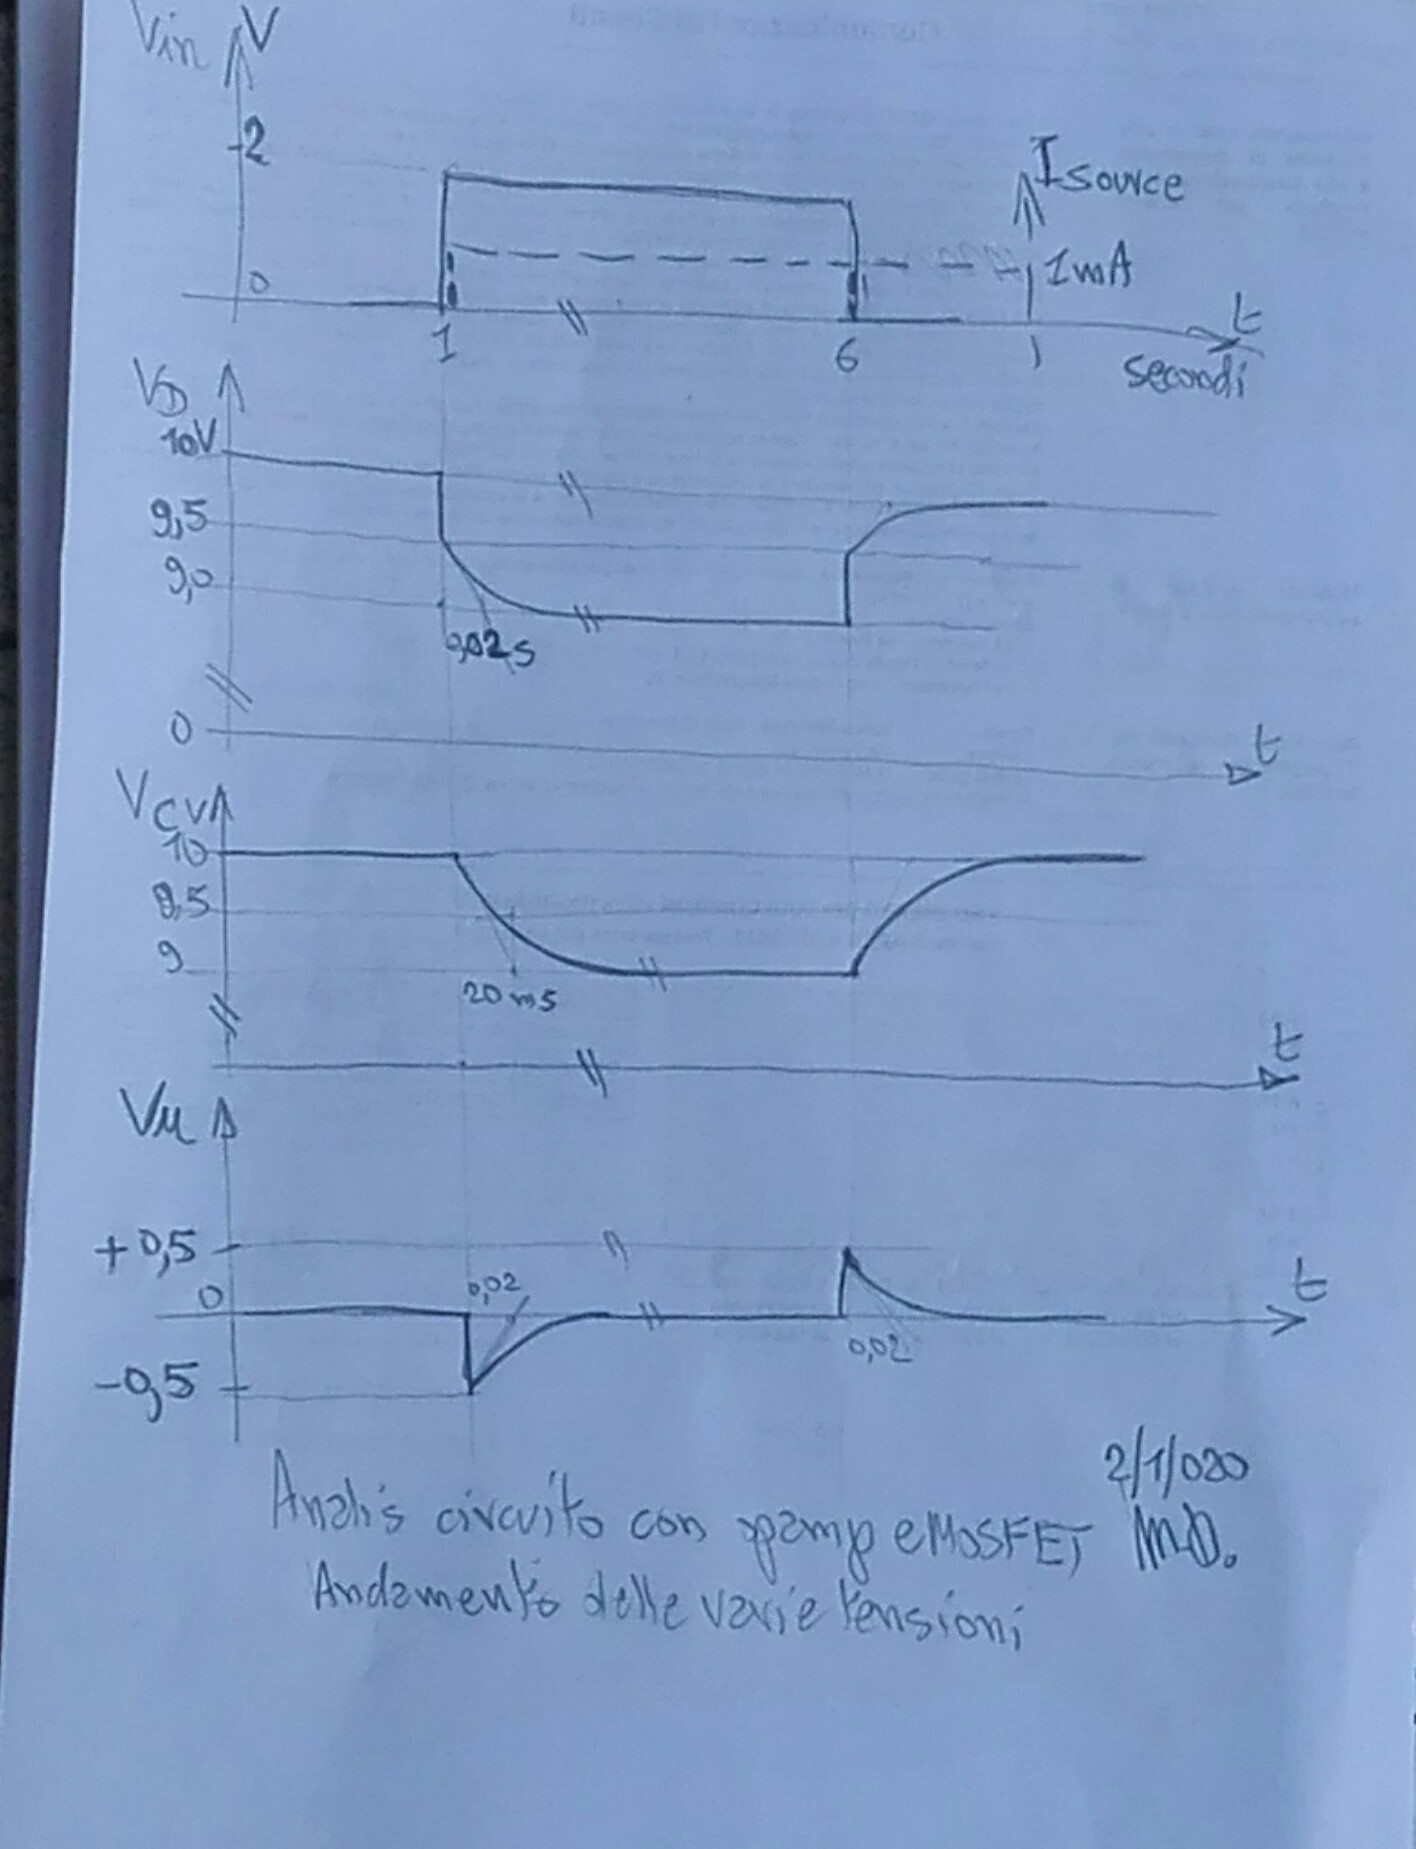 Vin V
2
Isource
1mA
0
1
6
t
secondi
VD
10V
9,5
9,0
0,02s
0
t
VC V
10
9,5
9
20 ms
t
Vu
+0,5
0,02
0
t
0,02
-0,5
2/1/020
Analis circuito con opamp eMOSFET M.D.
Andamento delle varie tensioni